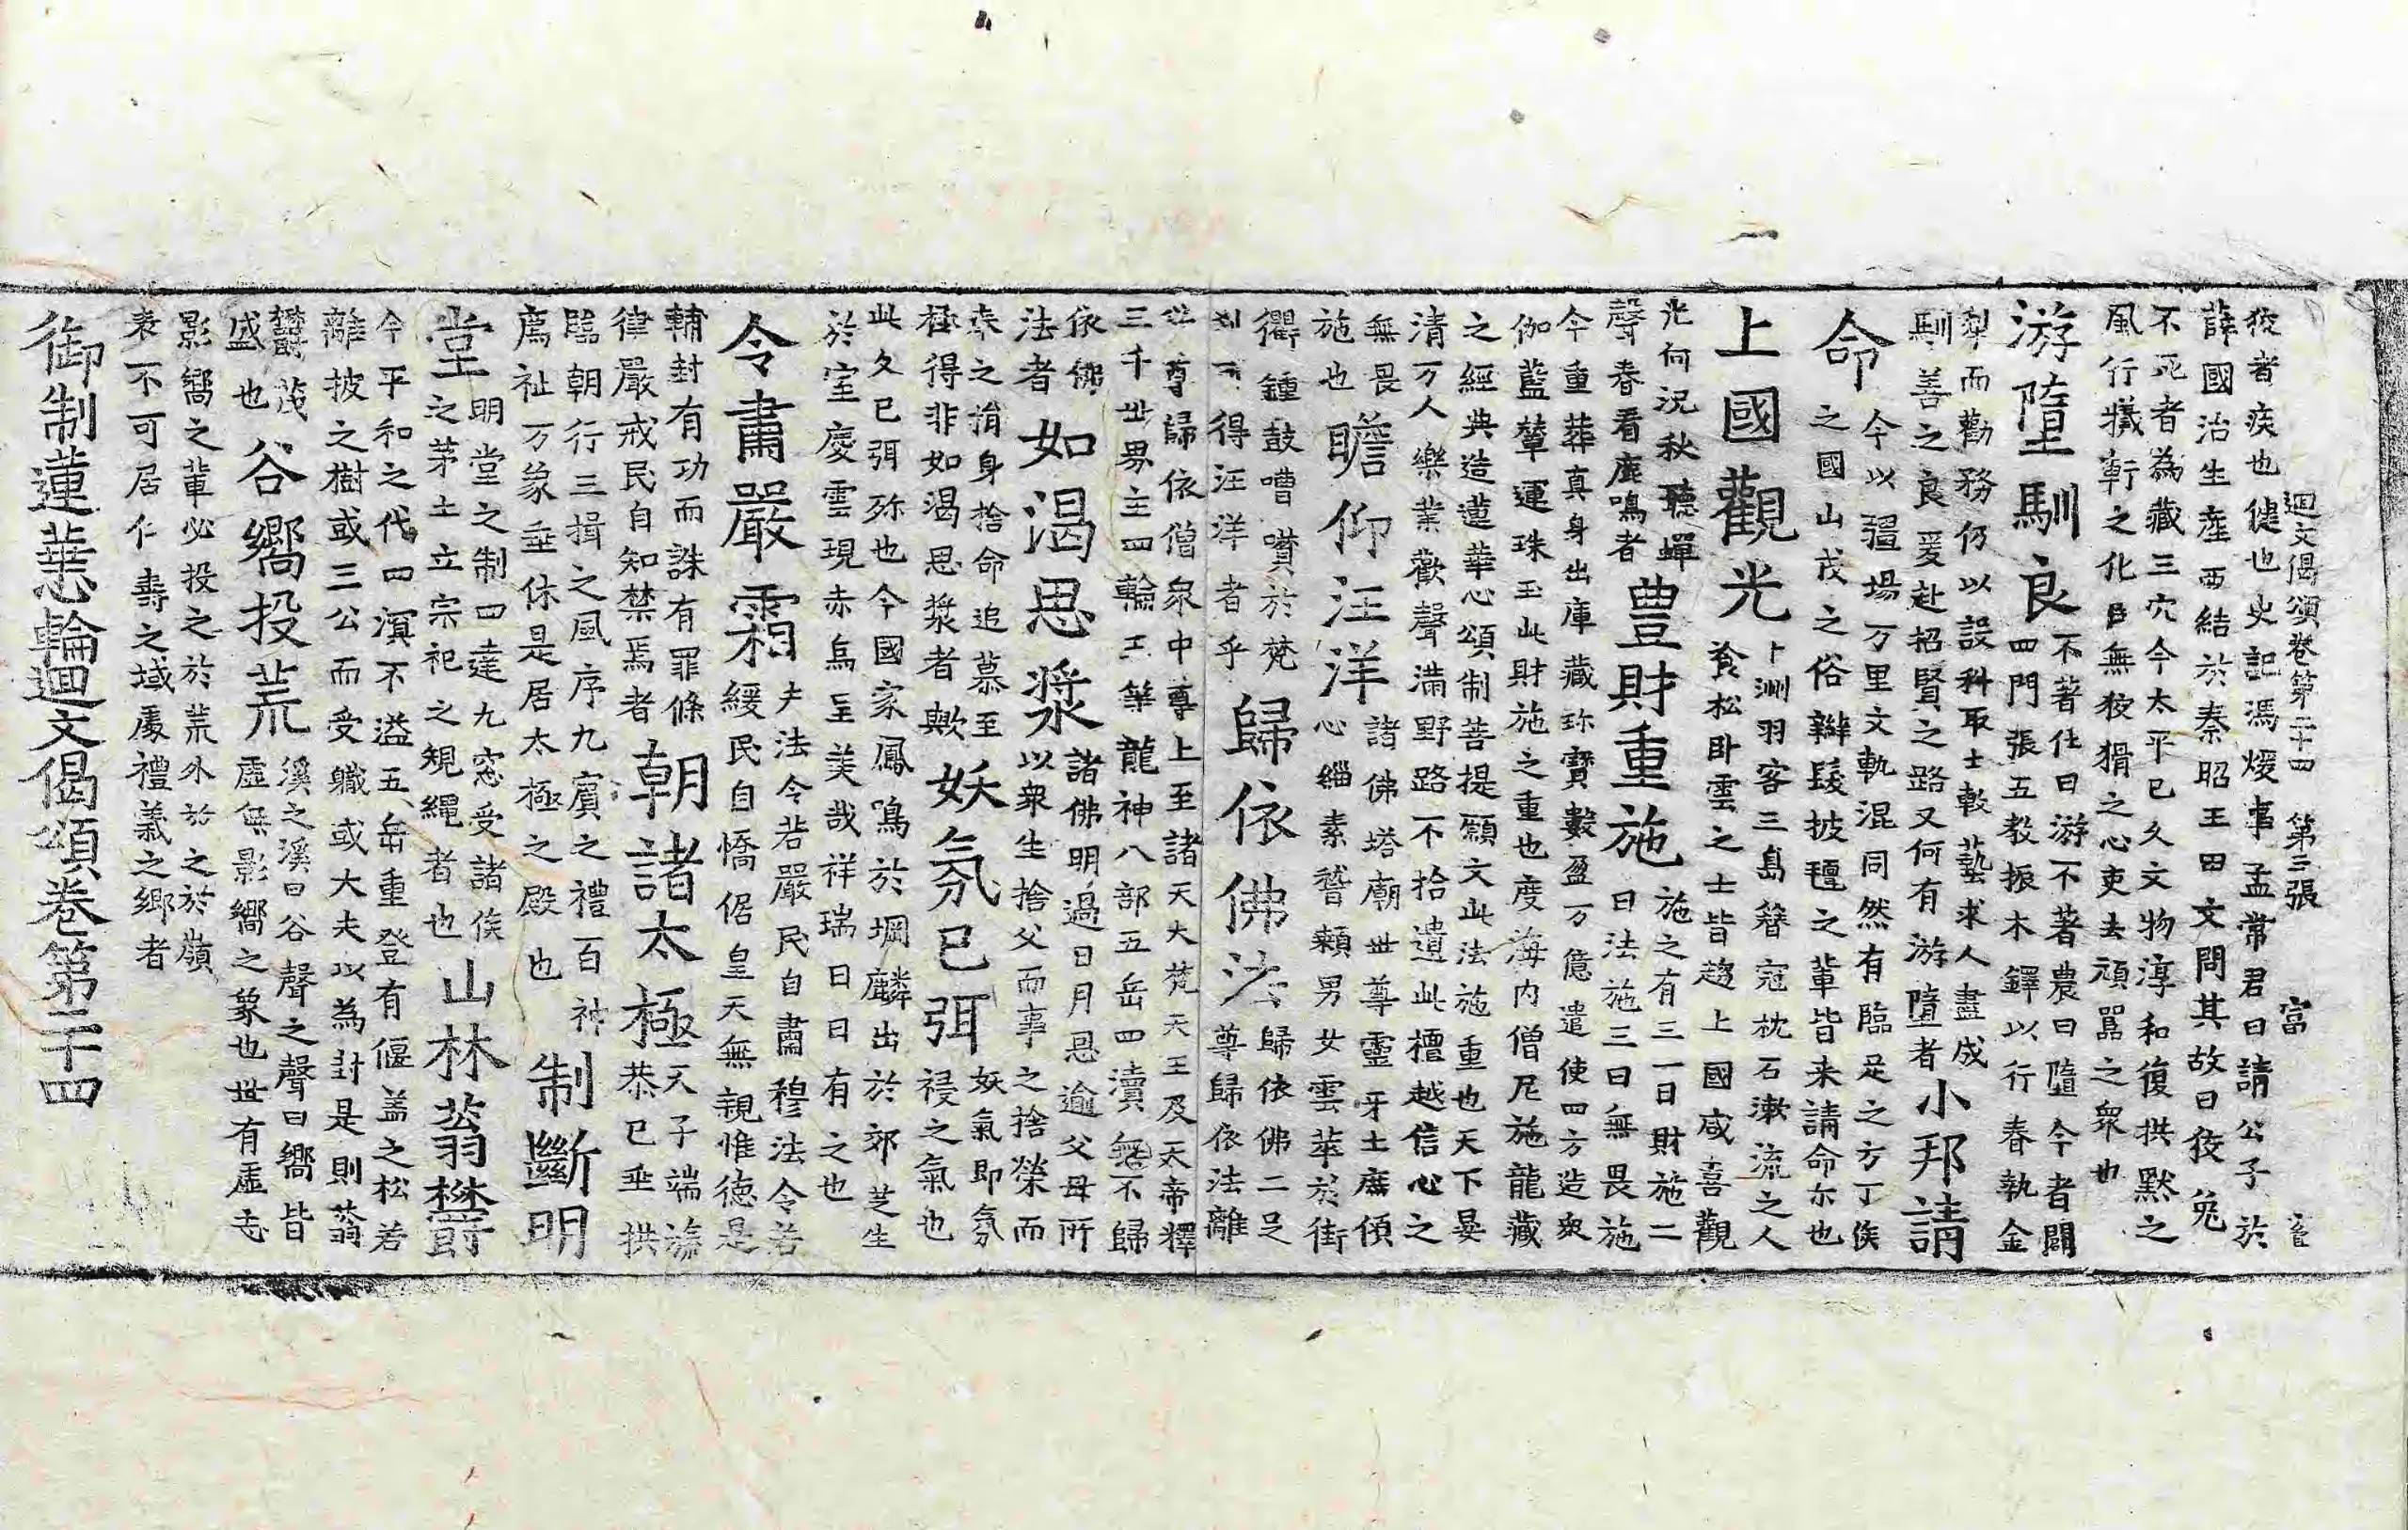 迴文偈頌卷第二十四 第三張 富
狡者疾也健也史記馮煖事孟常君曰請公子於
薛國治生産西結於秦昭王田文問其故曰狡兔
不死者為藏三穴今太平已久文物淳和復拱默之
風行犠軒之化自無狡猾之心吏去頑嚚之衆也
游墮馴良
不著仕曰游不著農曰墮今者闢
四門張五教振木鐸以行春執金
犁而勸務仍以設科取士敷藝求人盡成
馴善之良爰赴招賢之路又何有游墮者
小邦請
命
今以疆場万里文軌混同然有臨足之方丁侯
之國山戎之俗辮髮披氊之輩皆来請命尓也
上國觀光
卜測羽客三島簪冠枕石漱流之人
飡松卧雲之士皆趨上國咸喜觀
光何況秋聽蟬
聲春看鹿鳴者
豊財重施
施之有三一曰財施二
曰法施三曰無畏施
今重葬真身出庫藏珎寶數盈万億遣使四方造衆
伽藍輦運珠玉此財施之重也度海内僧尼施龍藏
之經典造蓮華心頌制菩提願文此法施重也天下晏
清万人樂業歡聲滿野路不拾遺此檀越信心之
無畏
施也
瞻仰汪洋
諸佛塔廟世尊靈牙士庶傾
心緇素瞽賴男女雲萃於街
衢鍾鼓嘈囋於梵
刹可得汪洋者乎
歸依佛法
歸依佛二足
尊歸依法離
尊歸依僧衆中尊上至諸天大梵天王及天帝釋
三千世界主四輪王等龍神八部五岳四瀆無不歸
依佛
法者
如渴思漿
諸佛明過日月恩逾父母所
以衆生捨父而事之捨榮而
奉之捐身捨命追慕至
極得非如渴思漿者歟
妖氛已弭
妖氣即氛
祲之氣也
此久已弭弥也今國家鳳鳴於堈麟出於郊芝生
於室慶雲現赤烏呈美哉祥瑞日日有之也
令肅嚴霜
夫法令若嚴民自肅穆法令若
緩民自憍倨皇天無親惟徳是
輔封有功而誅有罪條
律嚴戒民自知禁焉者
朝諸太極
天子端旒
恭已垂拱
臨朝行三揖之風序九賓之禮百神
薦祉万象垂休是居太極之殿也
制斷明
堂
明堂之制四達九窓受諸侯
之茅土立宗祀之規繩者也
山林蓊欝
今平和之代四溟不溢五岳重登有偃盖之松若
離披之樹或三公而受軄或大夫以為封是則蓊
欝茂
盛也
谷嚮投荒
溪之溪曰谷聲之聲曰嚮皆
虚無影嚮之象也世有虚忘
影嚮之輩必投之於荒外於之於嶺
表不可居仁壽之域處禮義之鄉者
御制蓮華心輪迴文偈頌卷第二十四